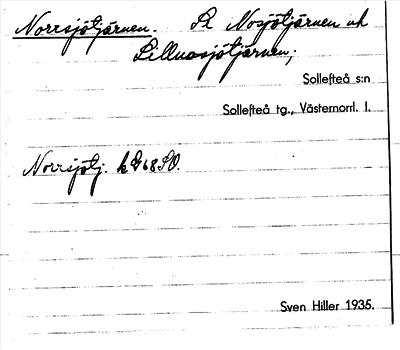 Norrsjötjärnen. Se Nosjötjärnen och
Lillnosjötjärnen;
Sollefteå s:n
Sollefteå tg., Västernorrl. l.
Norrsjötj. k G68SO.
Sven Hiller 1935.